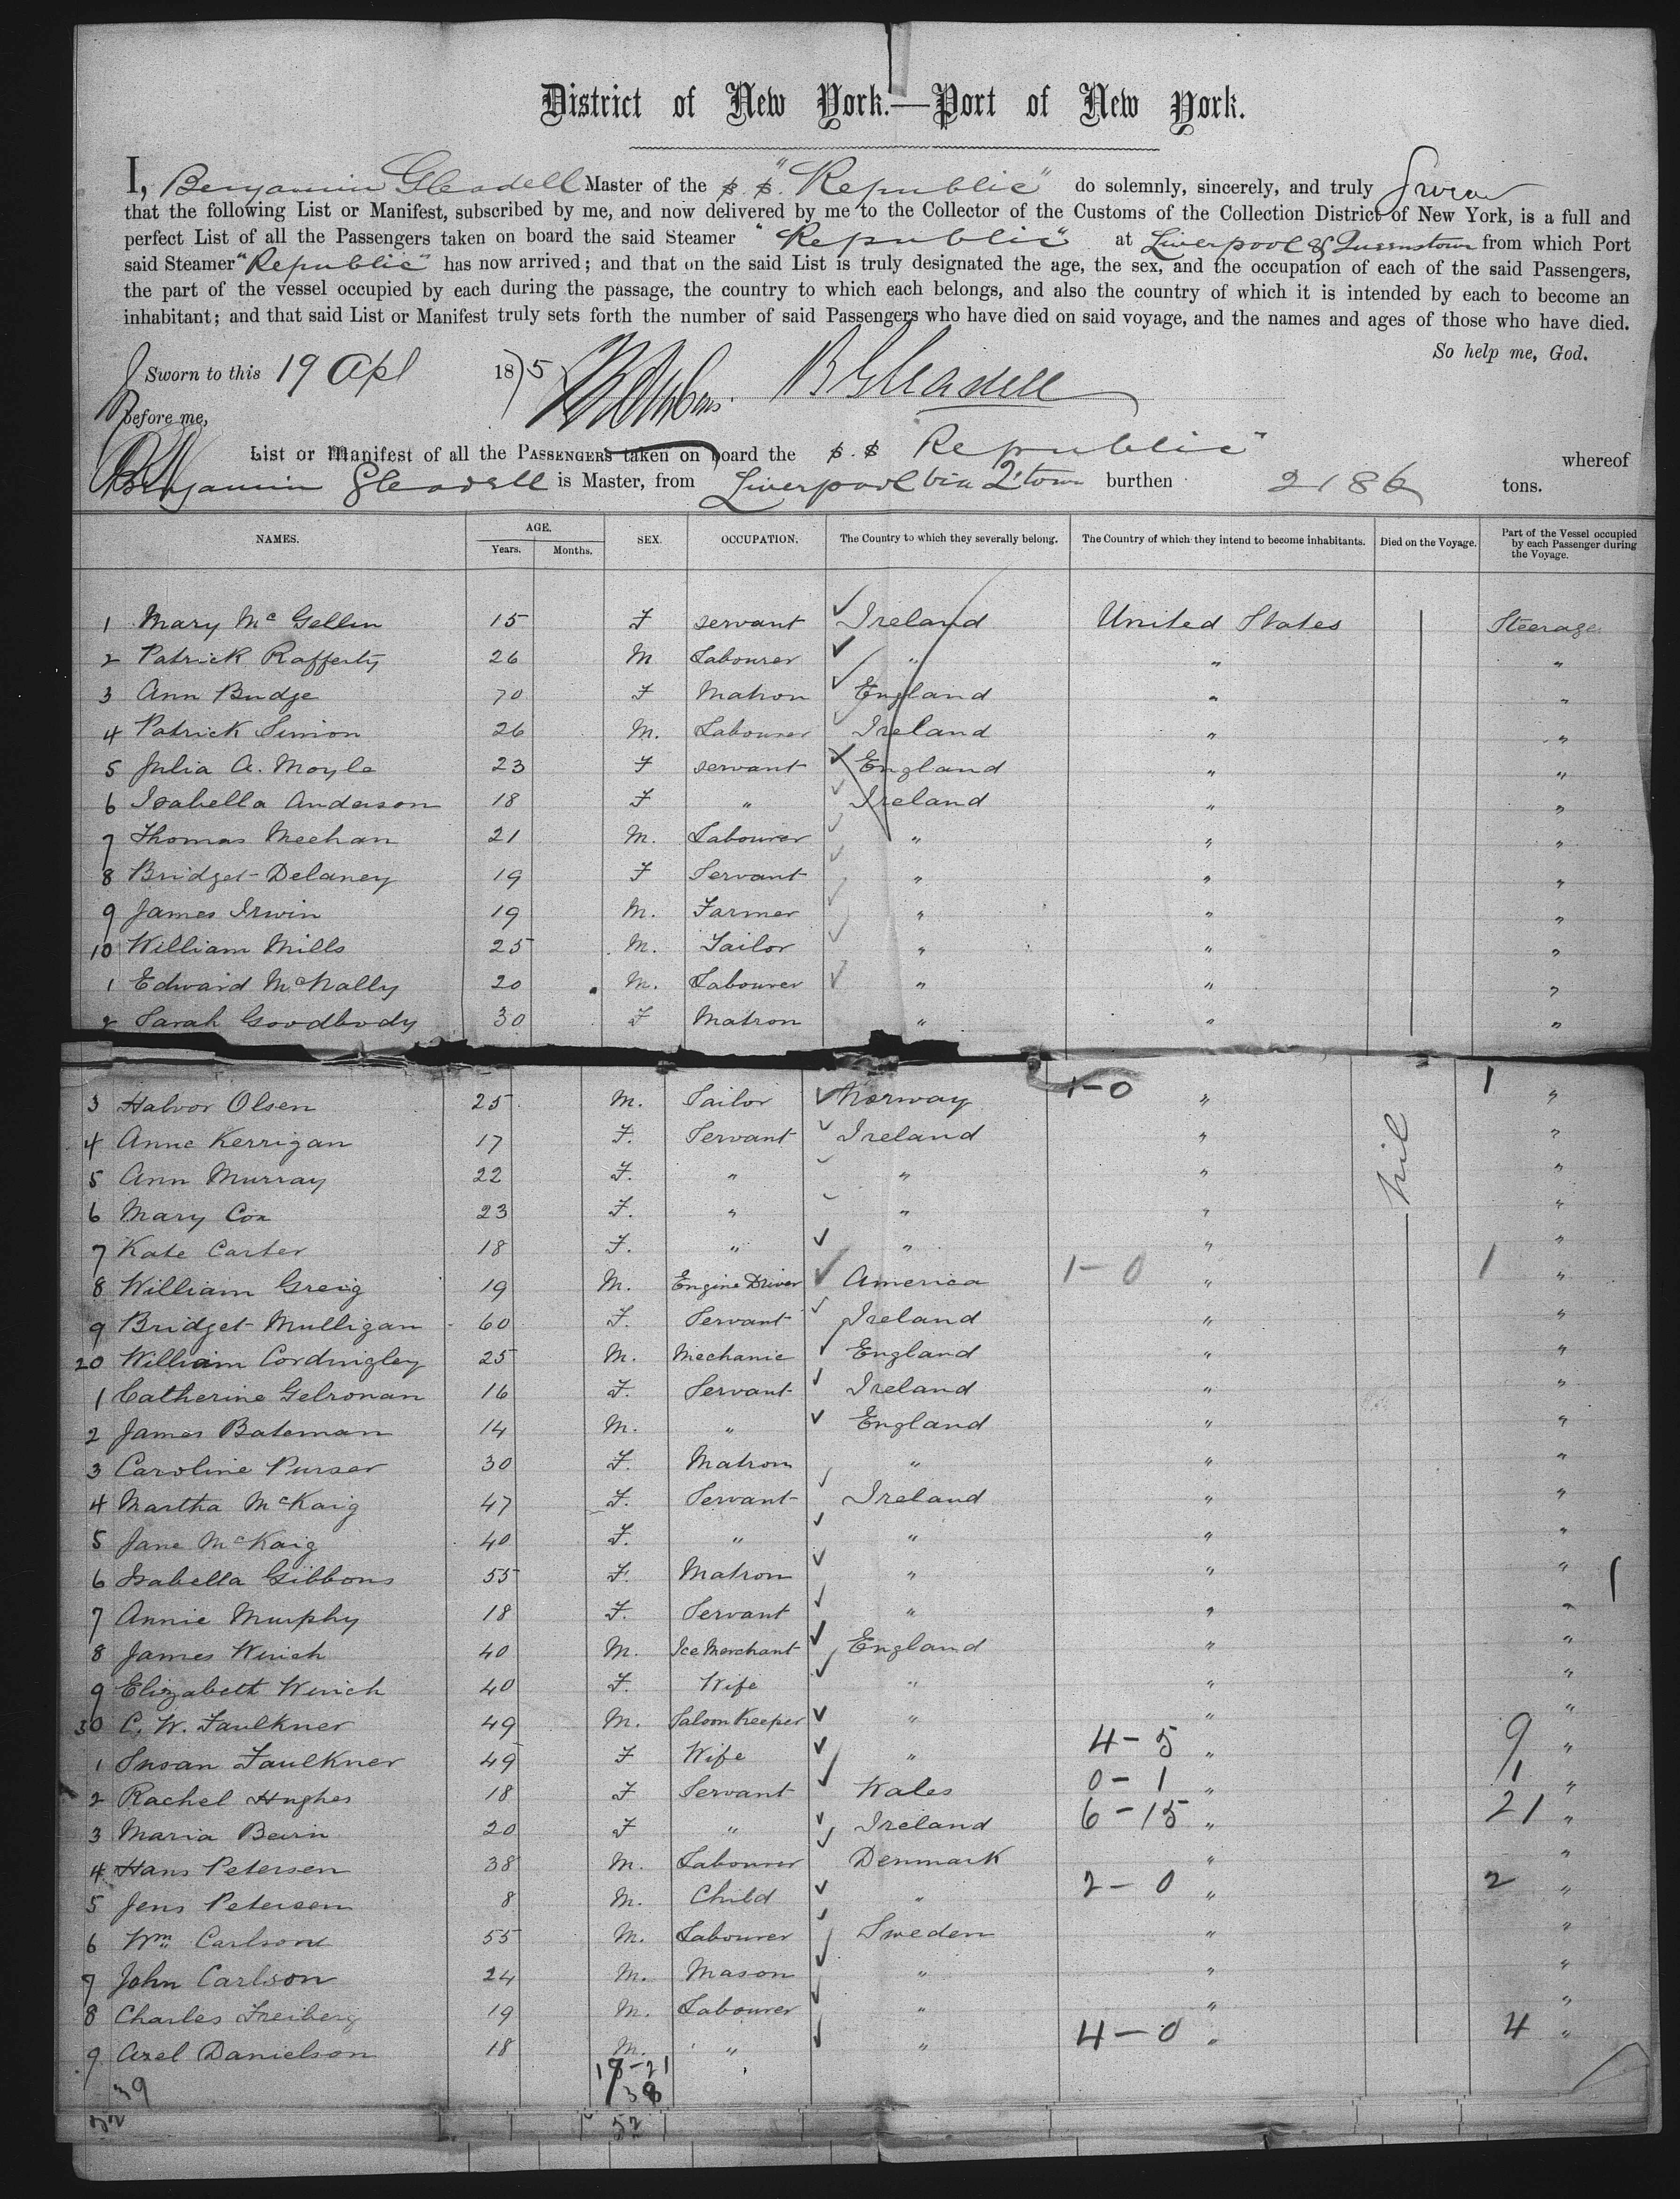 District of New York.—Port of New York.
I, Benjamin Gleadell Master of the S.S. "Republic" do solemnly, sincerely, and truly Swear
that the following List or Manifest, subscribed by me, and now delivered by me to the Collector of the Customs of the Collection District of New York, is a full and
perfect List of all the Passengers taken on board the said Steamer "Republic" at Liverpool & Queenstown from which Port
said Steamer "Republic" has now arrived; and that on the said List is truly designated the age, the sex, and the occupation of each of the said Passengers,
the part of the vessel occupied by each during the passage, the country to which each belongs, and also the country of which it is intended by each to become an
inhabitant; and that said List or Manifest truly sets forth the number of said Passengers who have died on said voyage, and the names and ages of those who have died.
So help me, God.
Sworn to this 19 Apl 1875 B Gleadell
before me,
List or Manifest of all the PASSENGERS taken on board the S.S Republic" whereof
Benjamin Gleadell is Master, from Liverpool via Q'town burthen 2186 tons.
NAMES. AGE. SEX. OCCUPATION. The Country to which they severally belong. The Country of which they intend to become inhabitants. Died on the Voyage. Part of the Vessel occupied by each Passenger during the Voyage.
Years. Months.
1 Mary McGellin 15 F servant Ireland United States Steerage
2 Patrick Rafferty 26 M Labourer " " "
3 Ann Budge 70 F Matron England " "
4 Patrick Simon 26 M. Labourer Ireland " "
5 Julia A. Moyle 23 F servant England " "
6 Isabella Anderson 18 F " Ireland " "
7 Thomas Meehan 21 M. Labourer " " "
8 Bridget Delaney 19 F Servant " " "
9 James Irwin 19 M. Farmer " " "
10 William Mills 25 M. Tailor " " "
1 Edward McNally 20 M. Labourer " " "
2 Sarah Goodbody 30 F Matron " " "
3 Halvor Olsen 25 M. Tailor Norway 1-0 " 1 "
4 Anne Kerrigan 17 F. Servant Ireland " nil "
5 Ann Murray 22 F. " " " "
6 Mary Cox 23 F. " " " "
7 Kate Carter 18 F. " " " "
8 William Greig 19 M. Engine Driver America 1-0 " 1 "
9 Bridget Mulligan 60 F. Servant Ireland " "
20 William Cordingley 25 M. Mechanic England " "
1 Catherine Gelronan 16 F. Servant Ireland " "
2 James Bateman 14 M. " England " "
3 Caroline Purser 30 F. Matron " " "
4 Martha McKaig 47 F. Servant Ireland " "
5 Jane McKaig 40 F. " " " "
6 Isabella Gibbons 55 F. Matron " " "
7 Annie Murphy 18 F. Servant " " "
8 James Winch 40 M. Ice Merchant England " "
9 Elizabeth Winch 40 F. Wife " " "
30 C. W. Faulkner 49 M. Saloon Keeper " " "
1 Susan Faulkner 49 F Wife " 4-5 " 9 "
2 Rachel Hughes 18 F Servant Wales 0-1 " 1 "
3 Maria Beirn 20 F " Ireland 6-15 " 21 "
4 Hans Petersen 38 M. Labourer Denmark " "
5 Jens Petersen 8 M. Child " 2-0 " 2 "
6 Wm Carlsond 55 M. Labourer Sweden " "
7 John Carlson 24 M. Mason " " "
8 Charles Freiberg 19 M. Labourer " " "
9 Axel Danielson 18 M. " " 4-0 " 4 "
39 38
52 52